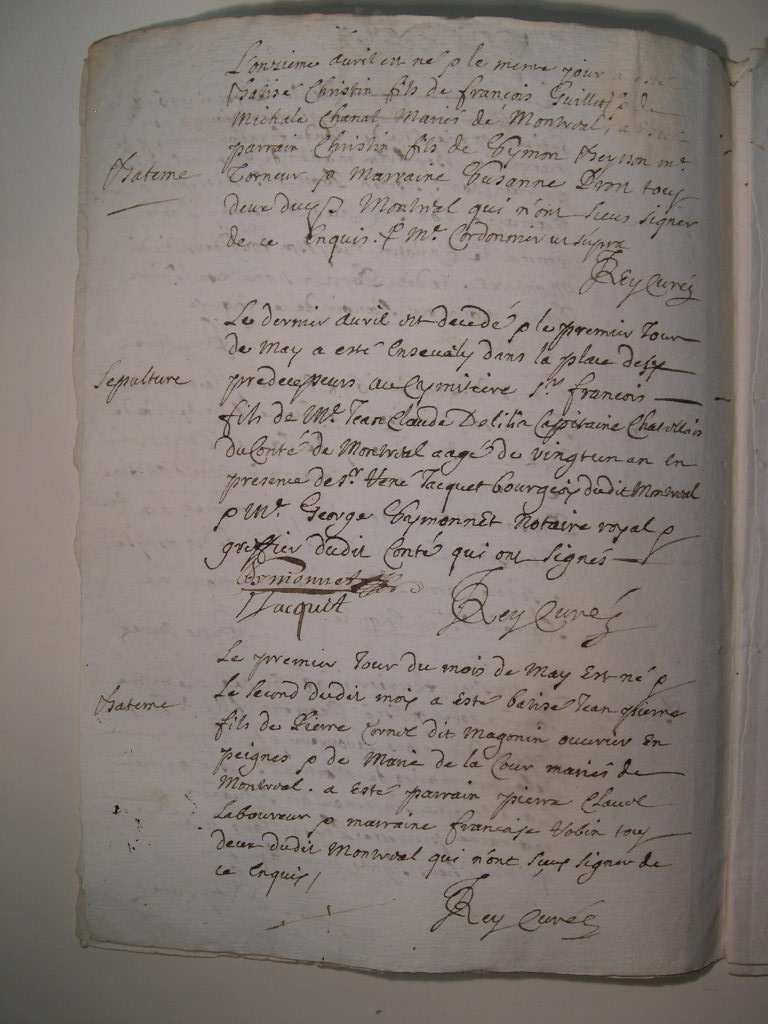 L'onzieme avril est né p le meme jour a esté
Batisé Christin fils de françois Guill de
Michale Chanal Mariés de Montreal, a
parrain Christin fils de Symon me
Bateme
Torneur p Marraine Susanne tous
deux dud Montreal qui n'ont sceus signer
de ce Enquis. Me Cordonnier ut supra
Rey Curé
Le dernier avril est decedé p le premier Jour
de May a esté Ensevely dans la place de ses
Sepulture
predecesseurs au Cymitiere sr francois
fils de Mr. Jean Claude Delilia Capitaine Chatellain
du Conté de Montreal aagé de vingtun an en
presence de sr. René Jacquet bourgeois dudit Montreal
p Mr. George Symonnet Notaire royal p
greffier dudit Conté qui ont signés
Symonnet
Jacquet
Rey Curé
Le premier Jour du mois de May Est né p
Bateme
Le second dudit mois a Esté batisé Jean pierre
fils de Pierre Cornet dit Magonin ouvrier En
peignes p de Marie de la Cour mariés de
Montreal. a Esté parrain pierre
Laboureur p marraine francoise tous
deux dudit Montreal qui n'ont sceus signer de
ce Enquis,
Rey Curé